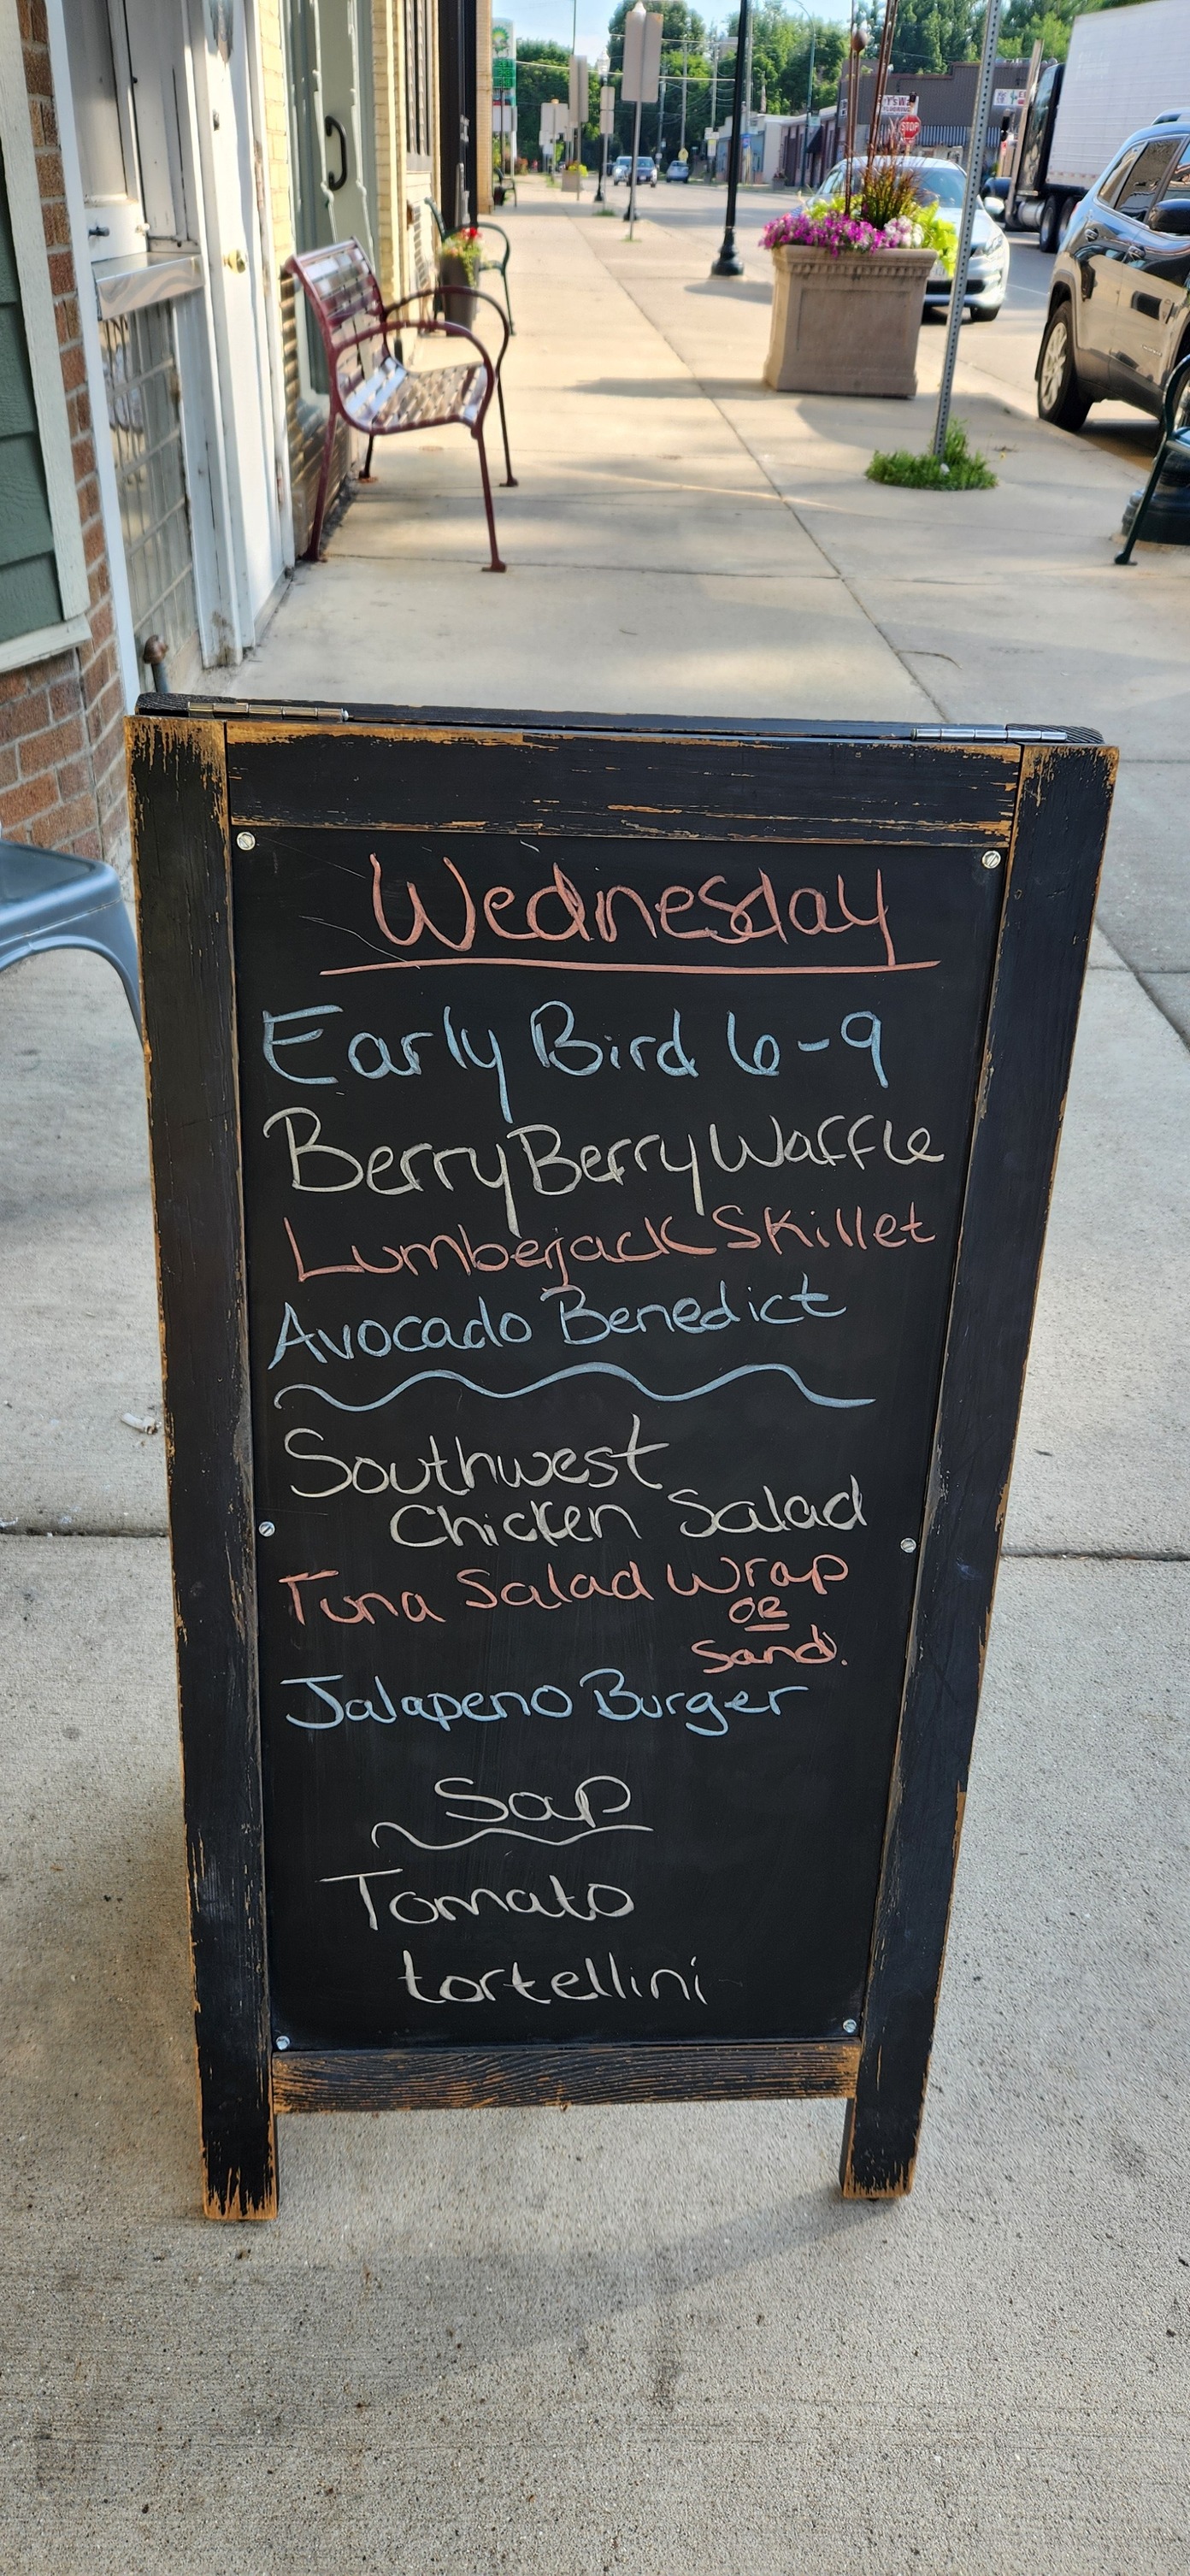 Wednesday
Early Bird 6-9
Berry Berry Waffle
Lumberjack Skillet
Avocado Benedict
Southwest
Chicken Salad
Tuna Salad Wrap
OR
Sand.
Jalapeno Burger
Soup
Tomato
tortellini
STOP